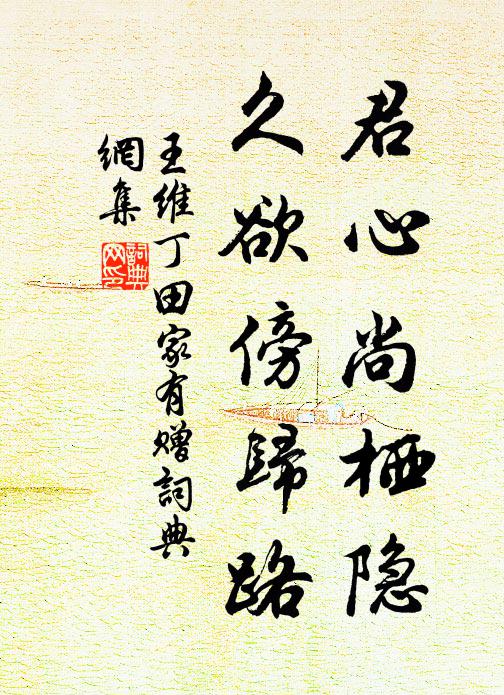 君心尚栖隐
久欲傍歸路
王维丁田家有赠詞典
網集
詞典
网印